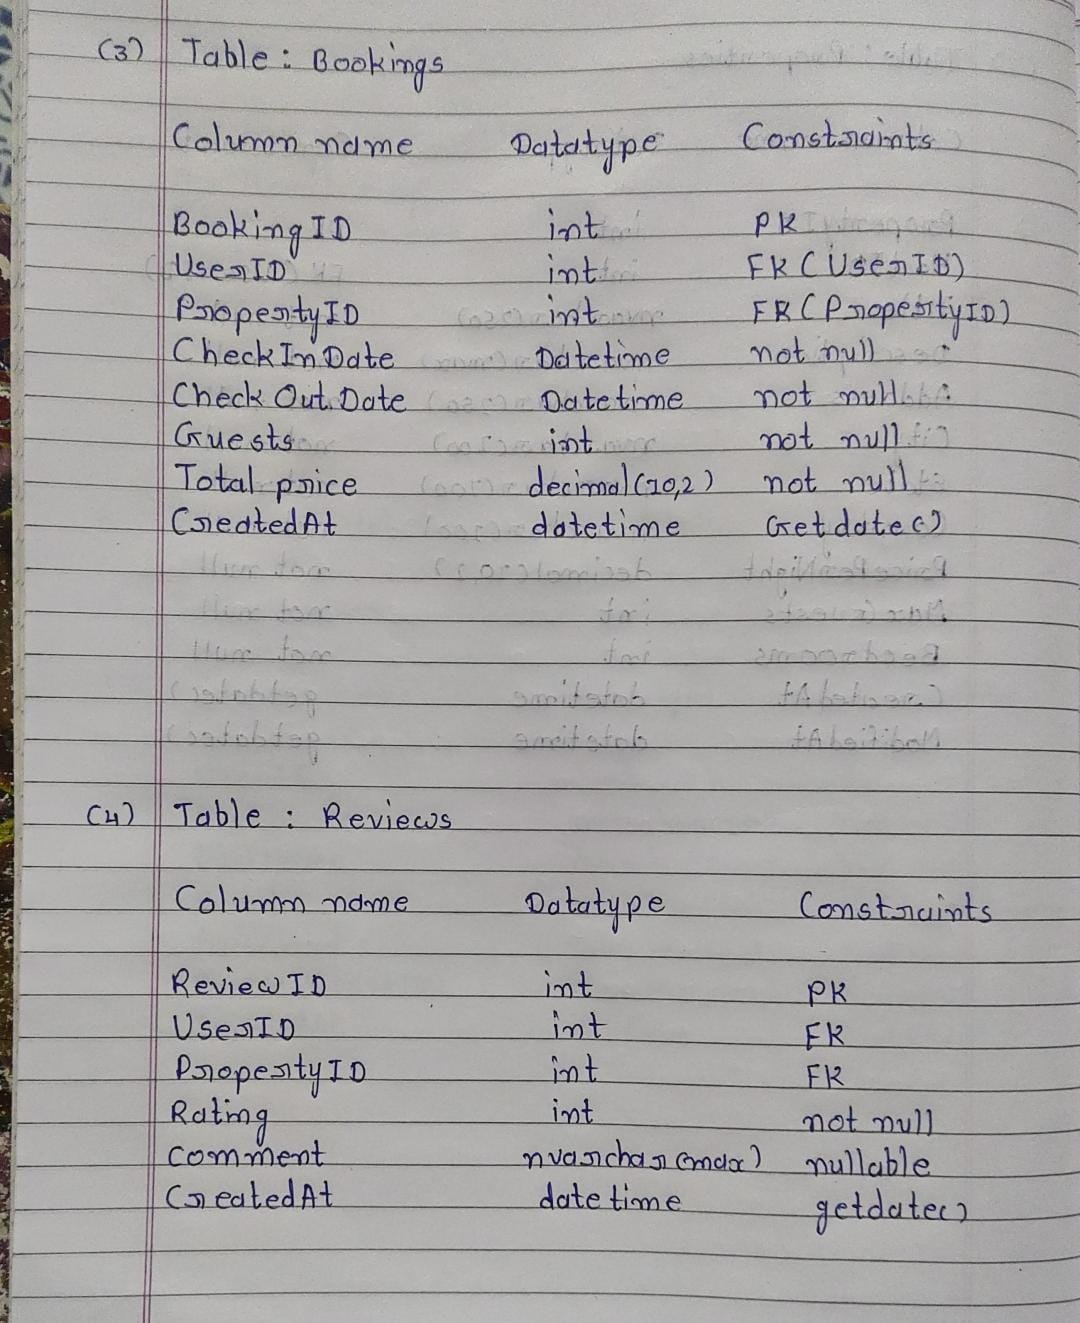 (3) Table : Bookings
Column name Datatype Constraints
BookingID int PK
UserID int FK (UserID)
PropertyID int FK (PropertyID)
CheckInDate Datetime not null
CheckOutDate Datetime not null
Guests int not null
Total price decimal(10,2) not null
CreatedAt datetime Getdate()
(4) Table : Reviews
Column name Datatype Constraints
ReviewID int PK
UserID int FK
PropertyID int FK
Rating int not null
comment nvarchar(max) nullable
CreatedAt datetime getdate()